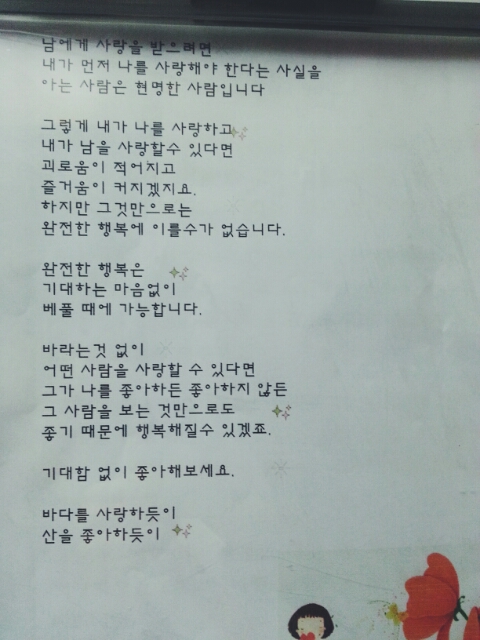 남에게 사랑을 받으려면
내가 먼저 나를 사랑해야 한다는 사실을
아는 사람은 현명한 사람입니다
그렇게 내가 나를 사랑하고
내가 남을 사랑할수 있다면
괴로움이 적어지고
즐거움이 커지겠지요.
하지만 그것만으로는
완전한 행복에 이를수가 없습니다.
완전한 행복은
기대하는 마음없이
베풀 때에 가능합니다.
바라는것 없이
어떤 사람을 사랑할 수 있다면
그가 나를 좋아하든 좋아하지 않든
그 사람을 보는 것만으로도
좋기 때문에 행복해질수 있겠죠.
기대함 없이 좋아해보세요.
바다를 사랑하듯이
산을 좋아하듯이